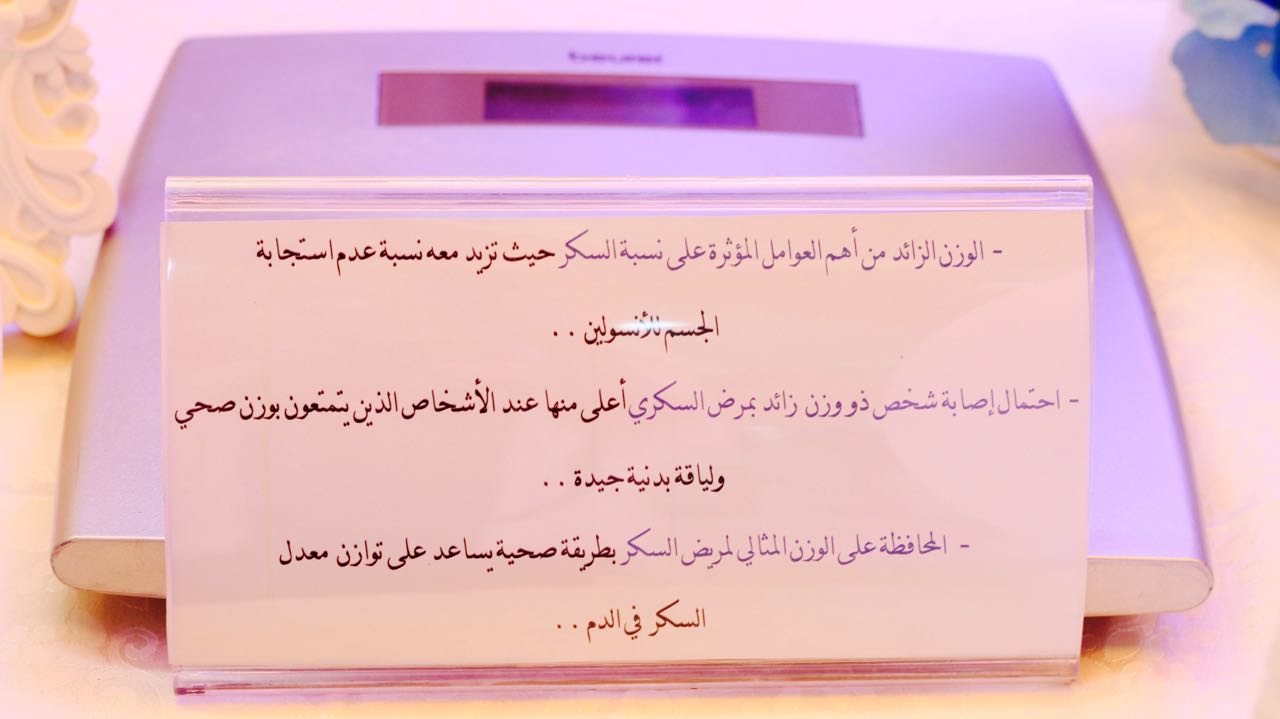 beurer
- الوزن الزائد من أهم العوامل المؤثرة على نسبة السكر حيث تزيد معه نسبة عدم استجابة
الجسم للأنسولين . .
- احتمال إصابة شخص ذو وزن زائد بمرض السكري أعلى منها عند الأشخاص الذين يتمتعون بوزن صحي
ولياقة بدنية جيدة . .
- المحافظة على الوزن المثالي لمريض السكر بطريقة صحية يساعد على توازن معدل
السكر في الدم . .